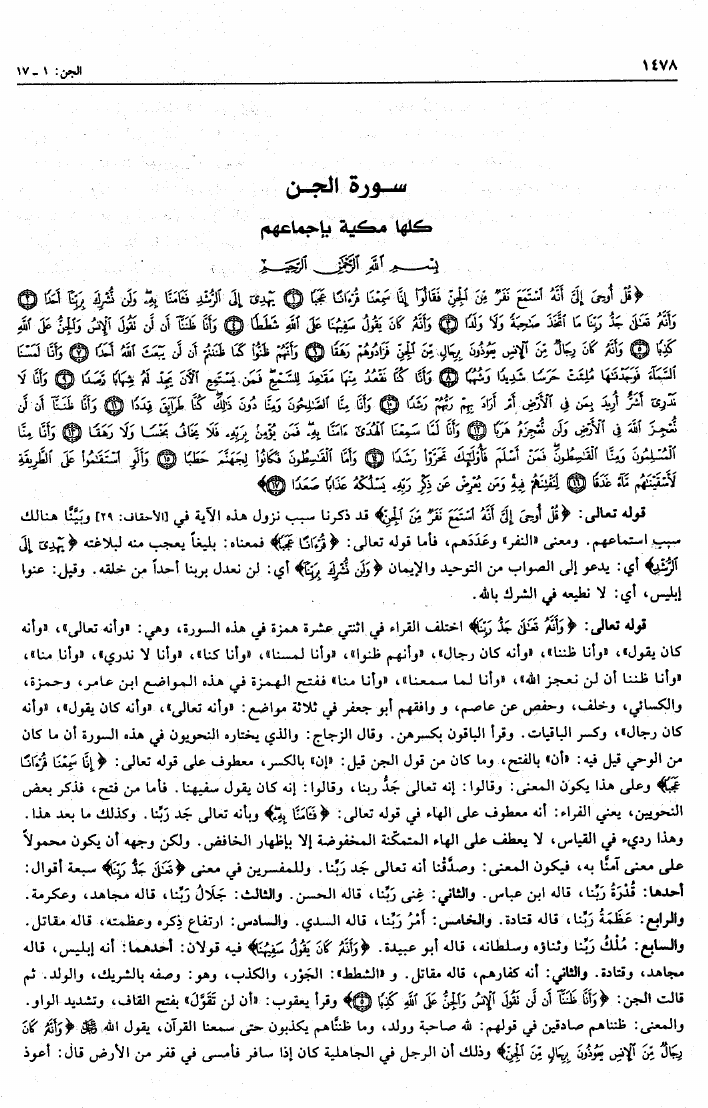 ١٤٧٨
الجن: ١ ـ ١٧
سـورة الجـن
كلها مكية بإجماعهم
بِسْمِ اللَّهِ الرَّحْمَٰنِ الرَّحِيمِ
﴿قُلْ أُوحِيَ إِلَيَّ أَنَّهُ ٱسْتَمَعَ نَفَرٌ مِّنَ ٱلْجِنِّ فَقَالُوٓا۟ إِنَّا سَمِعْنَا قُرْءَانًا عَجَبًا ۝١ يَهْدِىٓ إِلَى ٱلرُّشْدِ فَـَٔامَنَّا بِهِۦ وَلَن نُّشْرِكَ بِرَبِّنَآ أَحَدًا ۝٢
وَأَنَّهُۥ تَعَـٰلَىٰ جَدُّ رَبِّنَا مَا ٱتَّخَذَ صَـٰحِبَةً وَلَا وَلَدًا ۝٣ وَأَنَّهُۥ كَانَ يَقُولُ سَفِيهُنَا عَلَى ٱللَّهِ شَطَطًا ۝٤ وَأَنَّا ظَنَنَّآ أَن لَّن نَقُولَ ٱلْإِنسُ وَٱلْجِنُّ عَلَى ٱللَّهِ
كَذِبًا ۝٥ وَأَنَّهُۥ كَانَ رِجَالٌ مِّنَ ٱلْإِنسِ يَعُوذُونَ بِرِجَالٍ مِّنَ ٱلْجِنِّ فَزَادُوهُمْ رَهَقًا ۝٦ وَأَنَّهُمْ ظَنُّوا۟ كَمَا ظَنَنتُمْ أَن لَّن يَبْعَثَ ٱللَّهُ أَحَدًا ۝٧ وَأَنَّا لَمَسْنَا
ٱلسَّمَآءَ فَوَجَدْنَـٰهَا مُلِئَتْ حَرَسًا شَدِيدًا وَشُهُبًا ۝٨ وَأَنَّا كُنَّا نَقْعُدُ مِنْهَا مَقَـٰعِدَ لِلسَّمْعِ فَمَن يَسْتَمِعِ ٱلْـَٔانَ يَجِدْ لَهُۥ شِهَابًا رَّصَدًا ۝٩ وَأَنَّا لَا
نَدْرِىٓ أَشَرٌّ أُرِيدَ بِمَن فِى ٱلْأَرْضِ أَمْ أَرَادَ بِهِمْ رَبُّهُمْ رَشَدًا ۝١٠ وَأَنَّا مِنَّا ٱلصَّـٰلِحُونَ وَمِنَّا دُونَ ذَٰلِكَ كُنَّا طَرَآئِقَ قِدَدًا ۝١١ وَأَنَّا ظَنَنَّآ أَن لَّن
نُّعْجِزَ ٱللَّهَ فِى ٱلْأَرْضِ وَلَن نُّعْجِزَهُۥ هَرَبًا ۝١٢ وَأَنَّا لَمَّا سَمِعْنَا ٱلْهُدَىٰٓ ءَامَنَّا بِهِۦ فَمَن يُؤْمِنۢ بِرَبِّهِۦ فَلَا يَخَافُ بَخْسًا وَلَا رَهَقًا ۝١٣ وَأَنَّا مِنَّا
ٱلْمُسْلِمُونَ وَمِنَّا ٱلْقَـٰسِطُونَ فَمَنْ أَسْلَمَ فَأُو۟لَـٰٓئِكَ تَحَرَّوْا۟ رَشَدًا ۝١٤ وَأَمَّا ٱلْقَـٰسِطُونَ فَكَانُوا۟ لِجَهَنَّمَ حَطَبًا ۝١٥ وَأَلَّوِ ٱسْتَقَـٰمُوا۟ عَلَى ٱلطَّرِيقَةِ
لَأَسْقَيْنَـٰهُم مَّآءً غَدَقًا ۝١٦ لِّنَفْتِنَهُمْ فِيهِ وَمَن يُعْرِضْ عَن ذِكْرِ رَبِّهِۦ يَسْلُكْهُ عَذَابًا صَعَدًا ۝١٧﴾
قوله تعالى: ﴿قُلْ أُوحِيَ إِلَيَّ أَنَّهُ ٱسْتَمَعَ نَفَرٌ مِّنَ ٱلْجِنِّ﴾ قد ذكرنا سبب نزول هذه الآية في [الأحقاف: ٢٩] وبَيَّنَّا هنالك
سبب استماعهم. ومعنى «النفر» وعَدَدَهم، فأما قوله تعالى: ﴿قُرْءَانًا عَجَبًا﴾ فمعناه: بليغاً يعجب منه لبلاغته ﴿يَهْدِىٓ إِلَى
ٱلرُّشْدِ﴾ أي: يدعو إلى الصواب من التوحيد والإيمان ﴿وَلَن نُّشْرِكَ بِرَبِّنَآ﴾ أي: لن نعدل بربنا أحداً من خلقه. وقيل: عنوا
إبليس، أي: لا نطيعه في الشرك بالله.
قوله تعالى: ﴿وَأَنَّهُۥ تَعَـٰلَىٰ جَدُّ رَبِّنَا﴾ اختلف القراء في اثنتي عشرة همزة في هذه السورة، وهي: «وأنه تعالى»، «وأنه
كان يقول»، «وأنا ظننا»، «وأنه كان رجال»، «وأنهم ظنوا»، «وأنا لمسنا»، «وأنا كنا»، «وأنا لا ندري»، «وأنا منا»،
«وأنا ظننا أن لن نعجز الله»، «وأنا لما سمعنا»، «وأنا منا» ففتح الهمزة في هذه المواضع ابن عامر، وحمزة،
والكسائي، وخلف، وحفص عن عاصم، و وافقهم أبو جعفر في ثلاثة مواضع: «وأنه تعالى»، «وأنه كان يقول»، «وأنه
كان رجال»، وكسر الباقيات. وقرأ الباقون بكسرهن. وقال الزجاج: والذي يختاره النحويون في هذه السورة أن ما كان
من الوحي قيل فيه: «أن» بالفتح، وما كان من قول الجن قيل: «إن» بالكسر، معطوف على قوله تعالى: ﴿إِنَّا سَمِعْنَا قُرْءَانًا
عَجَبًا﴾ وعلى هذا يكون المعنى: وقالوا: إنه تعالى جَدُّ ربنا، وقالوا: إنه كان يقول سفيهنا. فأما من فتح، فذكر بعض
النحويين، يعني الفراء: أنه معطوف على الهاء في قوله تعالى: ﴿فَـَٔامَنَّا بِهِۦ﴾ وبأنه تعالى جَد رَبِّنا. وكذلك ما بعد هذا.
وهذا رديء في القياس، لا يعطف على الهاء المتمكّنة المخفوضة إلا بإظهار الخافض. ولكن وجهه أن يكون محمولاً
على معنى آمنَّا به، فيكون المعنى: وصدَّقْنا أنه تعالى جَد رَبِّنا. وللمفسرين في معنى ﴿تَعَـٰلَىٰ جَدُّ رَبِّنَا﴾ سبعة أقوال:
أحدها: قُدْرَةُ رَبِّنا، قاله ابن عباس. والثاني: غِنى رَبِّنا، قاله الحسن. والثالث: جَلَالُ رَبِّنا، قاله مجاهد، وعكرمة.
والرابع: عَظَمَةُ رَبِّنا، قاله قتادة. والخامس: أَمْرُ رَبِّنا، قاله السدي. والسادس: ارتفاع ذِكره وعظمته، قاله مقاتل.
والسابع: مُلْكُ رَبِّنا وثناؤه وسلطانه، قاله أبو عبيدة. ﴿وَأَنَّهُۥ كَانَ يَقُولُ سَفِيهُنَا﴾ فيه قولان: أحدهما: أنه إبليس، قاله
مجاهد، وقتادة. والثاني: أنه كفارهم، قاله مقاتل. و «الشطط»: الجَوْر، والكذب، وهو: وصفه بالشريك، والولد. ثم
قالت الجن: ﴿وَأَنَّا ظَنَنَّآ أَن لَّن نَقُولَ ٱلْإِنسُ وَٱلْجِنُّ عَلَى ٱللَّهِ كَذِبًا ۝٥﴾ وقرأ يعقوب: «أن لن تَقَوَّلَ» بفتح القاف، وتشديد الواو.
والمعنى: ظنناهم صادقين في قولهم: لله صاحبة وولد، وما ظننَّاهم يكذبون حتى سمعنا القرآن، يقول الله ﷻ ﴿وَأَنَّهُۥ كَانَ
رِجَالٌ مِّنَ ٱلْإِنسِ يَعُوذُونَ بِرِجَالٍ مِّنَ ٱلْجِنِّ﴾ وذلك أن الرجل في الجاهلية كان إذا سافر فأمسى في قفر من الأرض قال: أعوذ